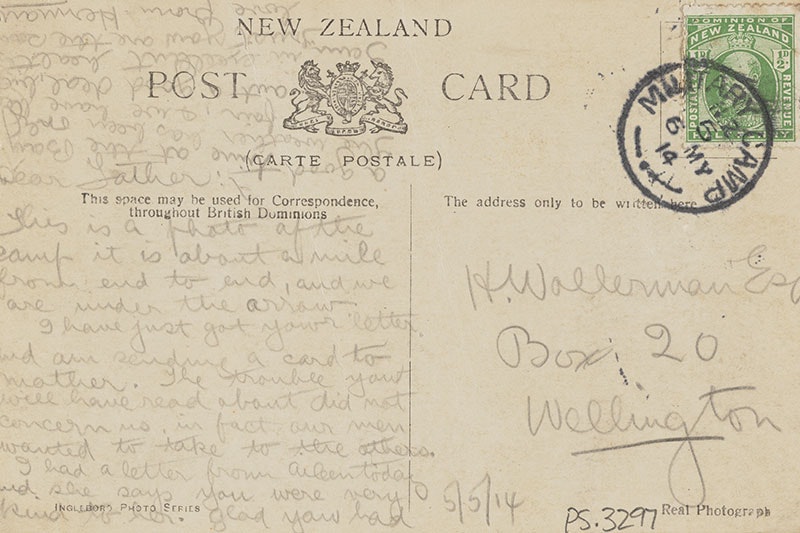 NEW ZEALAND
POST CARD
(CARTE POSTALE)
This space may be used for Correspondence,
throughout British Dominions
The address only to be written here
DOMINION OF
NEW ZEALAND
½D ½D
POSTAGE
REVENUE
MILITARY CAMP
6 MY
14
Dear Father:
This is a photo of the
camp it is about a mile
from end to end, and we
are under the arrow
I have just got your letter.
and am sending a card to
mother. The trouble you
will have read about did not
concern us. in fact our men
wanted to take to the others.
I had a letter from Aileen today
and she says you were very
kind to her. glad you had
a good time at the
love from Herman
5/5/14
H. Wollerman Esq
Box 20
Wellington
INGLEBORO PHOTO SERIES
PS.3297
Real Photograph